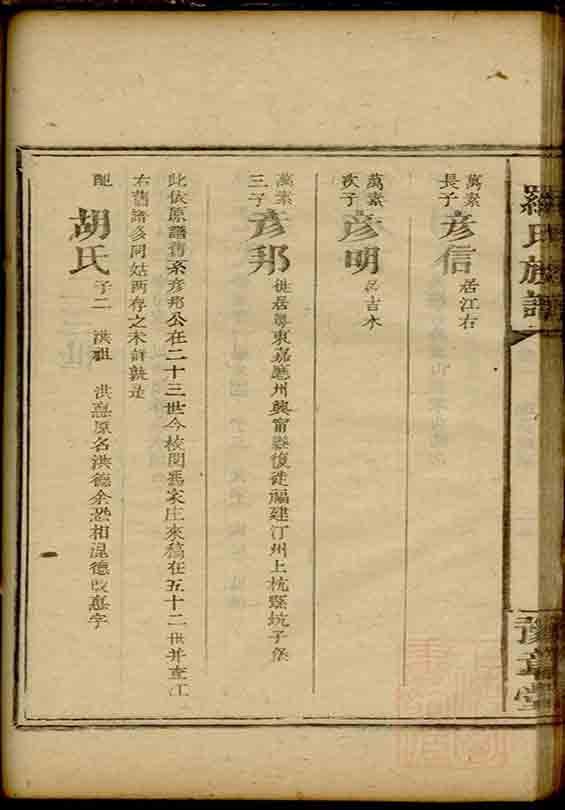 羅氏族譜
豫章堂
萬素長子 彦信 居江右
萬素次子 彦明 居吉水
萬素三子 彦邦 徙居粤東嘉應州興甯縣復徙福建汀州上杭縣坑子堡
此依原譜舊系彦邦公在二十三世今校閱馬家庄來稿在五十二世并查江
右舊諸多同姑两存之未詳孰是
配 胡氏 子二 洪祖 洪惪原名洪德余恐相混德改惪字